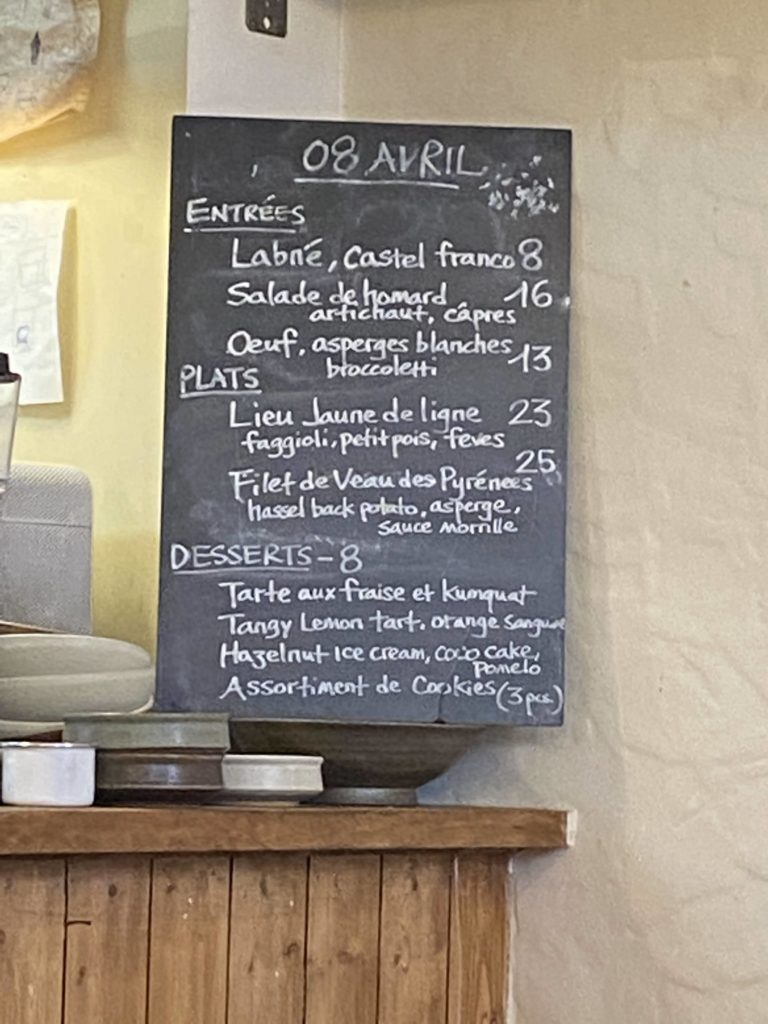 08 AVRIL
ENTRÉES
Labné, Castel franco 8
Salade de homard 16
artichaut, câpres
Oeuf, asperges blanches
broccoletti 13
PLATS
Lieu Jaune de ligne 23
faggioli, petit pois, feves
25
Filet de Veau des Pyrénées
hassel back potato, asperge,
sauce morille
DESSERTS - 8
Tarte aux fraise et kumquat
Tangy Lemon tart, orange sanguine
Hazelnut Ice cream, coco cake,
Pomelo
Assortiment de Cookies (3 pcs.)